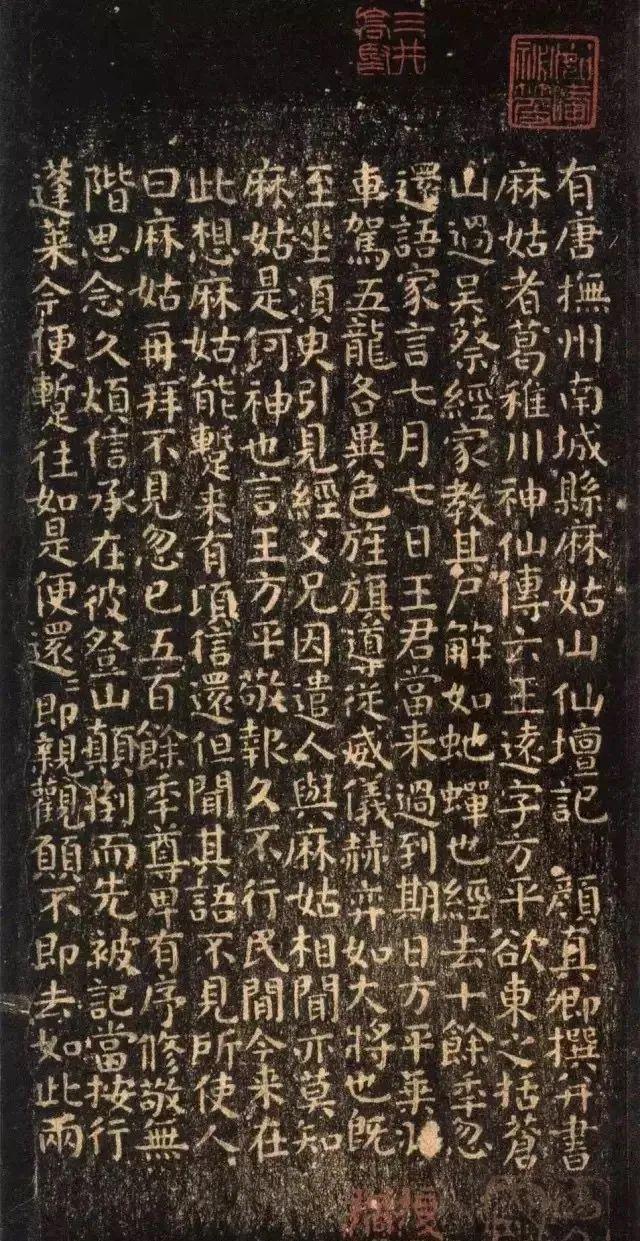 三井高堅
有唐撫州南城縣麻姑山仙壇記　顏真卿撰并書
麻姑者葛稚川神仙傳云王遠字方平欲東之括蒼
山過吳蔡經家教其尸解如虵蟬也經去十餘秊忽
還語家言七月七日王君當来過到期日方平乗
車駕五龍各異色旌旗導從威儀赫弈如大將也既
至坐須臾引見經父兄因遣人與麻姑相聞亦莫知
麻姑是何神也言王方平敬報久不行民閒今来在
此想麻姑能蹔来有頃信還但聞其語不見所使人
曰麻姑再拜不見忽已五百餘秊尊卑有序修敬無
階思念久煩信承在彼登山顛倒而先被記當按行
蓬萊今便蹔往如是便還〻即親觀願不即去如此兩